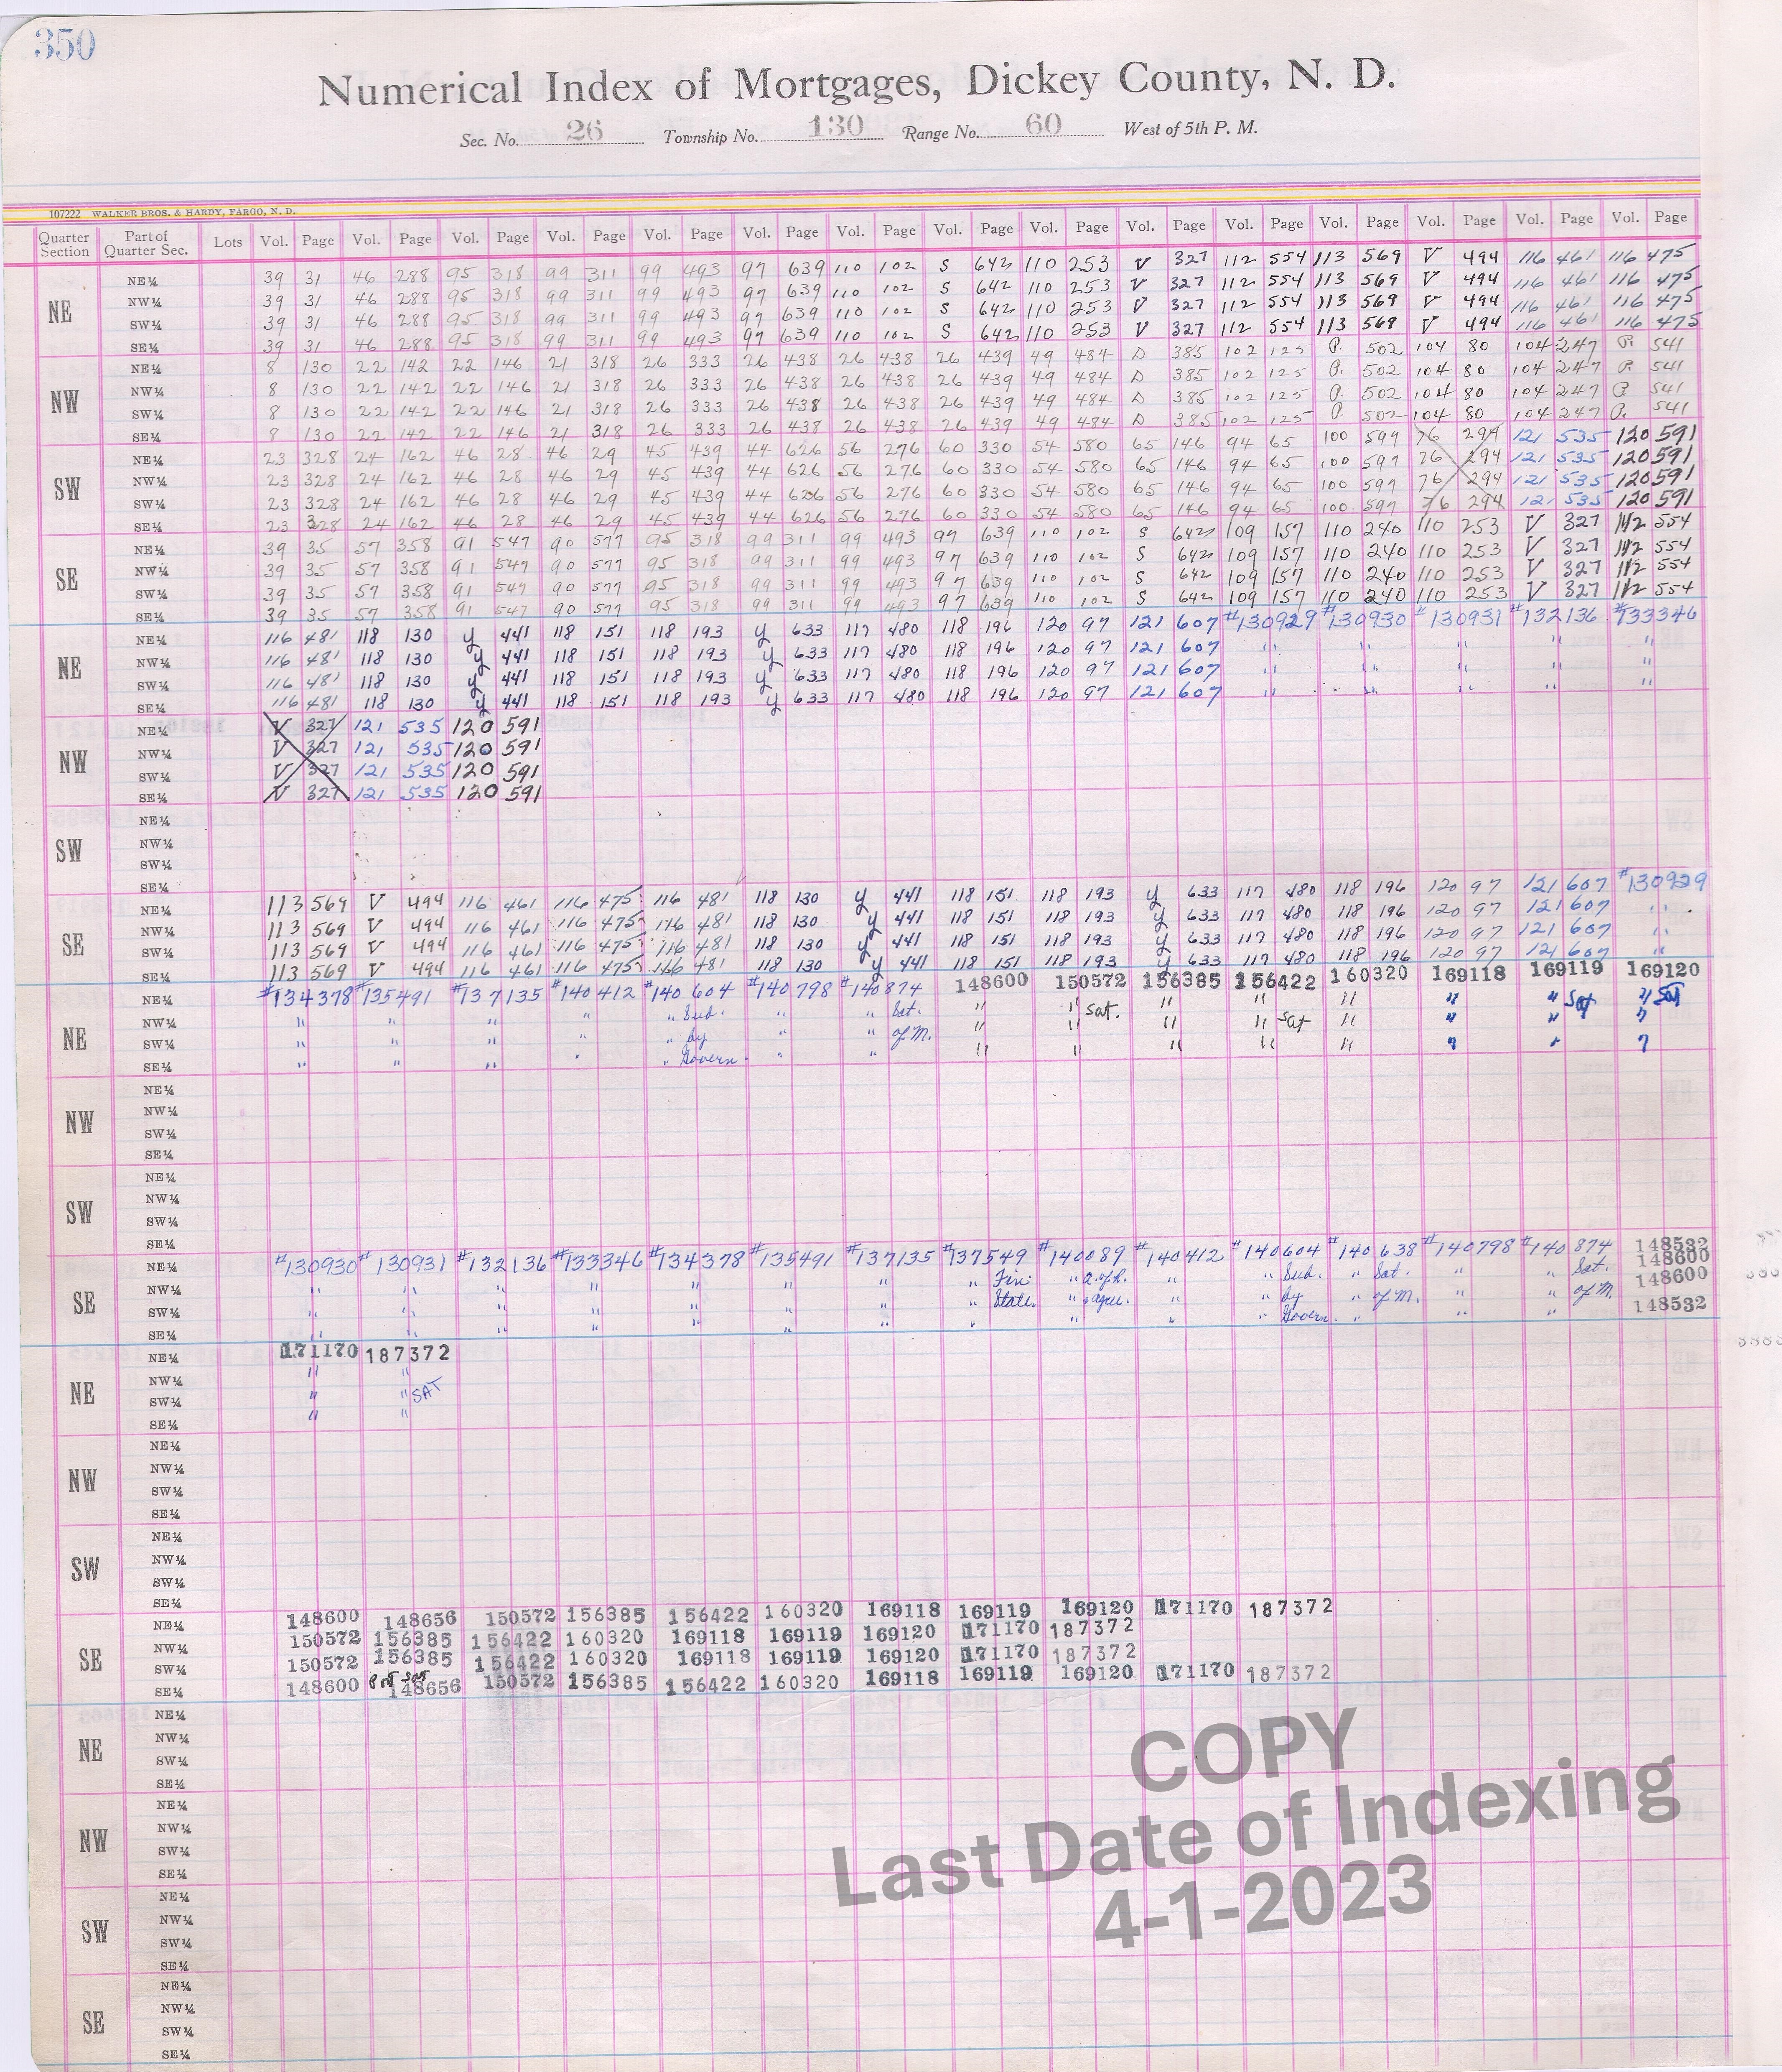 350
Numerical Index of Mortgages, Dickey County, N. D.
Sec. No. 26 Township No. 130 Range No. 60 West of 5th P. M.
107222 WALKER BROS. & HARDY, FARGO, N. D.
Quarter Section Part of Quarter Sec. Lots Vol. Page Vol. Page Vol. Page Vol. Page Vol. Page Vol. Page Vol. Page Vol. Page Vol. Page Vol. Page Vol. Page Vol. Page Vol. Page Vol. Page Vol. Page
NE
NE¼ 39 31 46 288 95 318 99 311 99 493 97 639 110 102 S 642 110 253 V 327 112 554 113 569 V 494 116 461 116 475
NW¼ 39 31 46 288 95 318 99 311 99 493 97 639 110 102 S 642 110 253 V 327 112 554 113 569 V 494 116 461 116 475
SW¼ 39 31 46 288 95 318 99 311 99 493 97 639 110 102 S 642 110 253 V 327 112 554 113 569 V 494 116 461 116 475
SE¼ 39 31 46 288 95 318 99 311 99 493 97 639 110 102 S 642 110 253 V 327 112 554 113 569 V 494 116 461 116 475
NW
NE¼ 8 130 22 142 22 146 21 318 26 333 26 438 26 438 26 439 49 484 D 385 102 125 P. 502 104 80 104 247 P 541
NW¼ 8 130 22 142 22 146 21 318 26 333 26 438 26 438 26 439 49 484 D 385 102 125 P. 502 104 80 104 247 P 541
SW¼ 8 130 22 142 22 146 21 318 26 333 26 438 26 438 26 439 49 484 D 385 102 125 P. 502 104 80 104 247 P 541
SE¼ 8 130 22 142 22 146 21 318 26 333 26 438 26 438 26 439 49 484 D 385 102 125 P. 502 104 80 104 247 P. 541
SW
NE¼ 23 328 24 162 46 28 46 29 45 439 44 626 56 276 60 330 54 580 65 146 94 65 100 599 76 294 121 535 120 591
NW¼ 23 328 24 162 46 28 46 29 45 439 44 626 56 276 60 330 54 580 65 146 94 65 100 597 76 294 121 535 120 591
SW¼ 23 328 24 162 46 28 46 29 45 439 44 626 56 276 60 330 54 580 65 146 94 65 100 597 76 294 121 535 120 591
SE¼ 23 328 24 162 46 28 46 29 45 439 44 626 56 276 60 330 54 580 65 146 94 65 100 597 76 294 121 535 120 591
SE
NE¼ 39 35 57 358 91 547 90 577 95 318 99 311 99 493 97 639 110 102 S 642 109 157 110 240 110 253 V 327 112 554
NW¼ 39 35 57 358 91 547 90 577 95 318 99 311 99 493 97 639 110 102 S 642 109 157 110 240 110 253 V 327 112 554
SW¼ 39 35 57 358 91 547 90 577 95 318 99 311 99 493 97 639 110 102 S 642 109 157 110 240 110 253 V 327 112 554
SE¼ 39 35 57 358 91 547 90 577 95 318 99 311 99 493 97 639 110 102 S 642 109 157 110 240 110 253 V 327 112 554
NE
NE¼ 116 481 118 130 y 441 118 151 118 193 y 633 117 480 118 196 120 97 121 607 #130929 #130930 #130931 #132136 #133346
NW¼ 116 481 118 130 y 441 118 151 118 193 y 633 117 480 118 196 120 97 121 607 " " " " "
SW¼ 116 481 118 130 y 441 118 151 118 193 y 633 117 480 118 196 120 97 121 607 " " " " "
SE¼ 116 481 118 130 y 441 118 151 118 193 y 633 117 480 118 196 120 97 121 607 " " " " "
NW
NE¼ V 327 121 535 120 591
NW¼ V 327 121 535 120 591
SW¼ V 327 121 535 120 591
SE¼ V 327 121 535 120 591
SW
NE¼
NW¼
SW¼
SE¼
SE
NE¼ 113 569 V 494 116 461 116 475 116 481 118 130 y 441 118 151 118 193 y 633 117 480 118 196 120 97 121 607 #130929
NW¼ 113 569 V 494 116 461 116 475 116 481 118 130 y 441 118 151 118 193 y 633 117 480 118 196 120 97 121 607 "
SW¼ 113 569 V 494 116 461 116 475 116 481 118 130 y 441 118 151 118 193 y 633 117 480 118 196 120 97 121 607 "
SE¼ 113 569 V 494 116 461 116 475 116 481 118 130 y 441 118 151 118 193 y 633 117 480 118 196 120 97 121 607 "
NE
NE¼ #134378 #135491 #137135 #140412 #140604 #140798 #140874 148600 150572 156385 156422 160320 169118 169119 169120
NW¼ " " " " " Sub. " " Sat. " " Sat. " " " " " Sat " Sat
SW¼ " " " " " by " " of M. " " " " Sat " " " "
SE¼ " " " " " Govern. " " " " " " " " " "
NW
NE¼
NW¼
SW¼
SE¼
SW
NE¼
NW¼
SW¼
SE¼
SE
NE¼ #130930 #130931 #132136 #133346 #134378 #135491 #137135 #137549 #140089 #140412 #140604 #140638 #140798 #140874 148532 148600
NW¼ " " " " " " " " Fin. " " " Sub. " Sat. " " Sat. 148600
SW¼ " " " " " " " " State. " agree. " " by " of M. " " of M.
SE¼ " " " " " " " " " " " Govern. " " " 148532
NE
NE¼ 171170 187372
NW¼ " "
SW¼ " " SAT
SE¼ " "
NW
NE¼
NW¼
SW¼
SE¼
SW
NE¼
NW¼
SW¼
SE¼
SE
NE¼ 148600 148656 150572 156385 156422 160320 169118 169119 169120 171170 187372
NW¼ 150572 156385 156422 160320 169118 169119 169120 171170 187372
SW¼ 150572 156385 156422 160320 169118 169119 169120 171170 187372
SE¼ 148600 148656 150572 156385 156422 160320 169118 169119 169120 171170 187372
NE
NE¼
NW¼
SW¼
SE¼
NW
NE¼
NW¼
SW¼
SE¼
SW
NE¼
NW¼
SW¼
SE¼
SE
NE¼
NW¼
SW¼
SE¼
COPY
Last Date of Indexing
4-1-2023